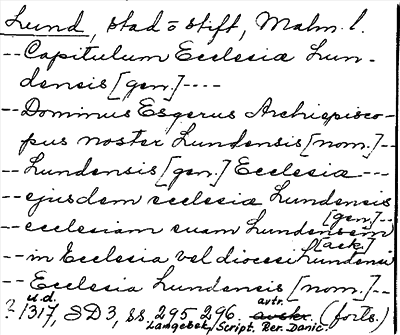 Lund, stad o stift, Malm. l.
-- Capitulum Ecclesiæ Lun-
densis [gen.] ----
-- Dominus Esgerus Archiepisco-
pus noster Lundensis [nom.] --
-- Lundensis [gen.] Ecclesiæ ---
-- ejusdem ecclesiæ Lundensis [gen.] --
-- ecclesiam suam Lundensem [ack.]
-- in Ecclesia vel diocesi Lundensi
-- Ecclesia Lundensis [nom.] --
? u.d. 1317, SD 3, ss. 295-296. avskr. avtr. (forts.)
Langebek, Script. Rer. Danic.